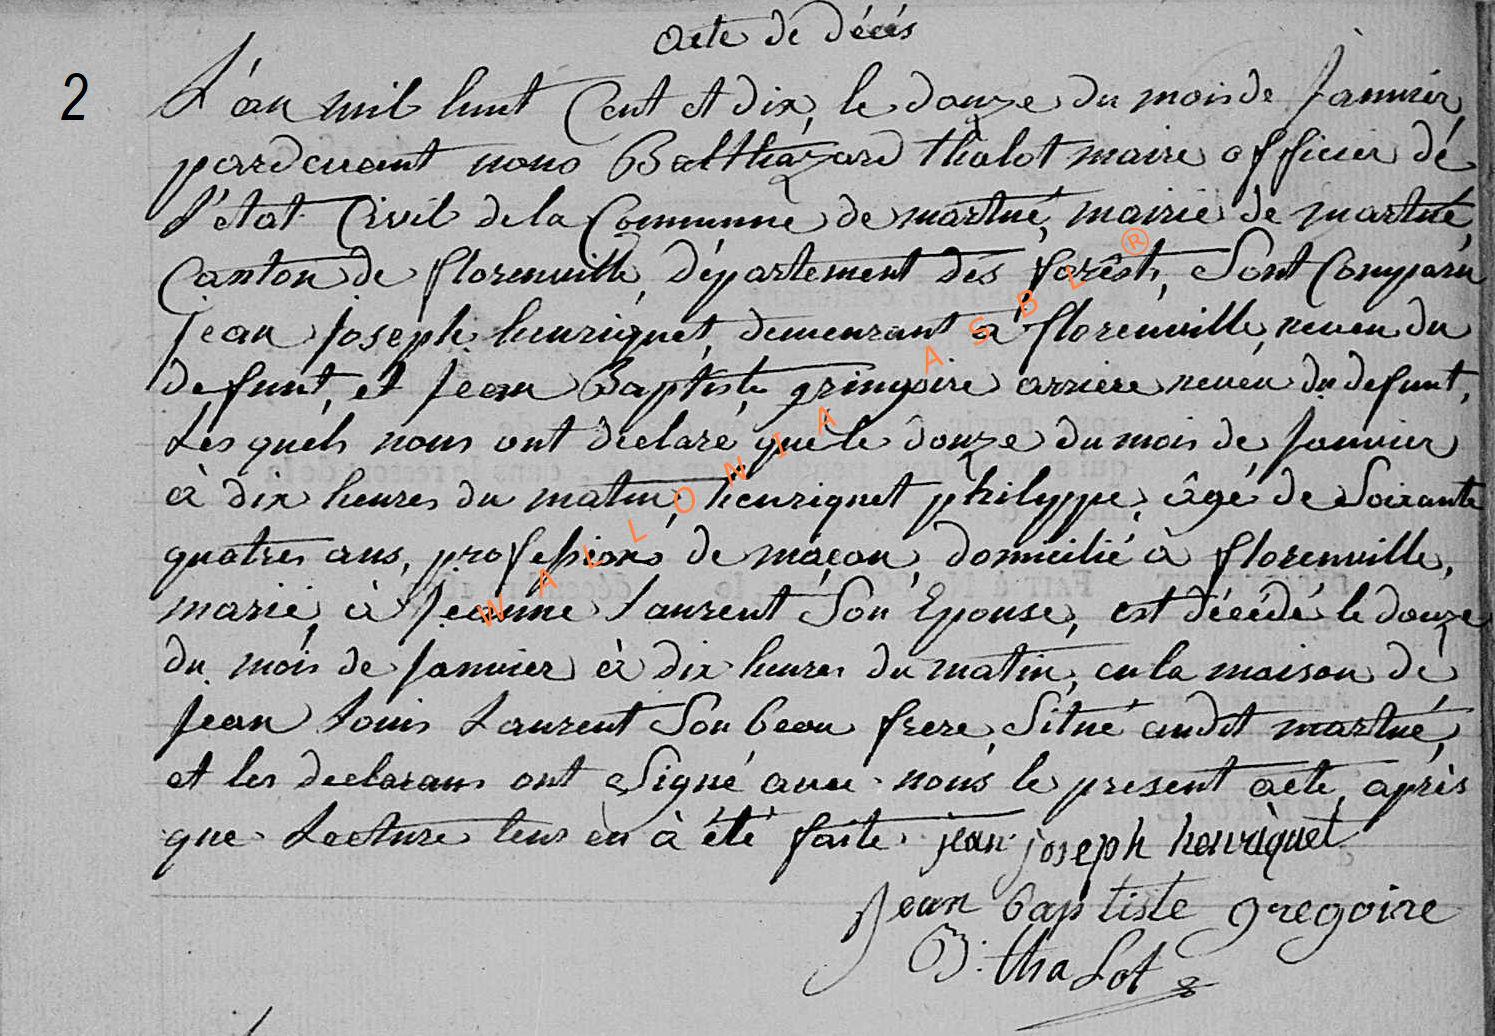 acte de décés
2
L'an mil huit Cent et dix, le douze du mois de Janvier,
pardevant nous Balthazard thalot maire officier de
l'etat Civil de la Commune de martué, mairie de martué,
Canton de florenville, département des forêsts, Sont Comparu
jean Joseph henriquet, demeurant à florenville, neveu du
defunt, et Jean Baptiste gringoire arriere neveu du defunt,
Les quels nous ont declaré que le douze du mois de Janvier
à dix heures du matin, henriquet philyppe, âgé de Soixante
quatres ans, profession de maçon, domicilié à florenville,
marié, à Jeanne Laurent Son Epouse, est décédé le douze
du mois de Janvier à dix heures du matin, en la maison de
Jean Louis Laurent Son beau frere, Situé audit martué,
et les declarans ont Signé avec nous le present acte, après
que Lecture leur en à été faite. jean joseph henriquet
Jean baptiste gregoire
B. thalot
WALLONIA ASBL ®